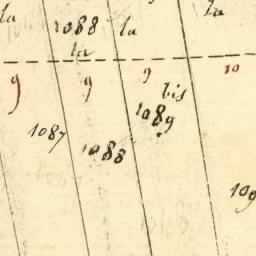 la
1088
la
la
la
9
9
9
10
bis
1089
1087
1088
109